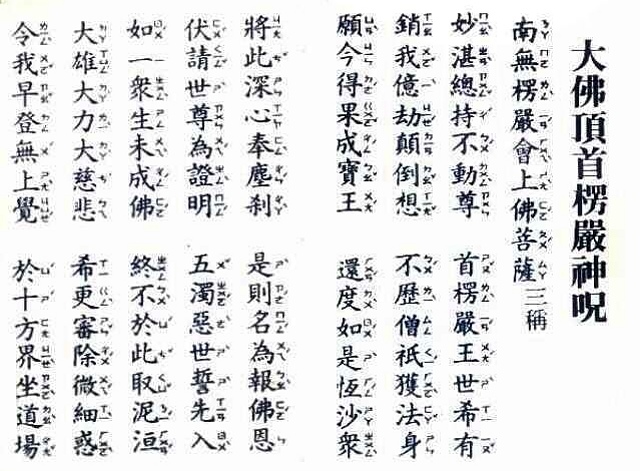 大佛頂首楞嚴神咒
南無楞嚴會上佛菩薩 三稱
妙湛總持不動尊 首楞嚴王世希有
銷我億劫顛倒想 不歷僧祇獲法身
願今得果成寶王 還度如是恆沙衆
將此深心奉塵剎 是則名為報佛恩
伏請世尊為證明 五濁惡世誓先入
如一衆生未成佛 終不於此取泥洹
大雄大力大慈悲 希更審除微細惑
令我早登無上覺 於十方界坐道場